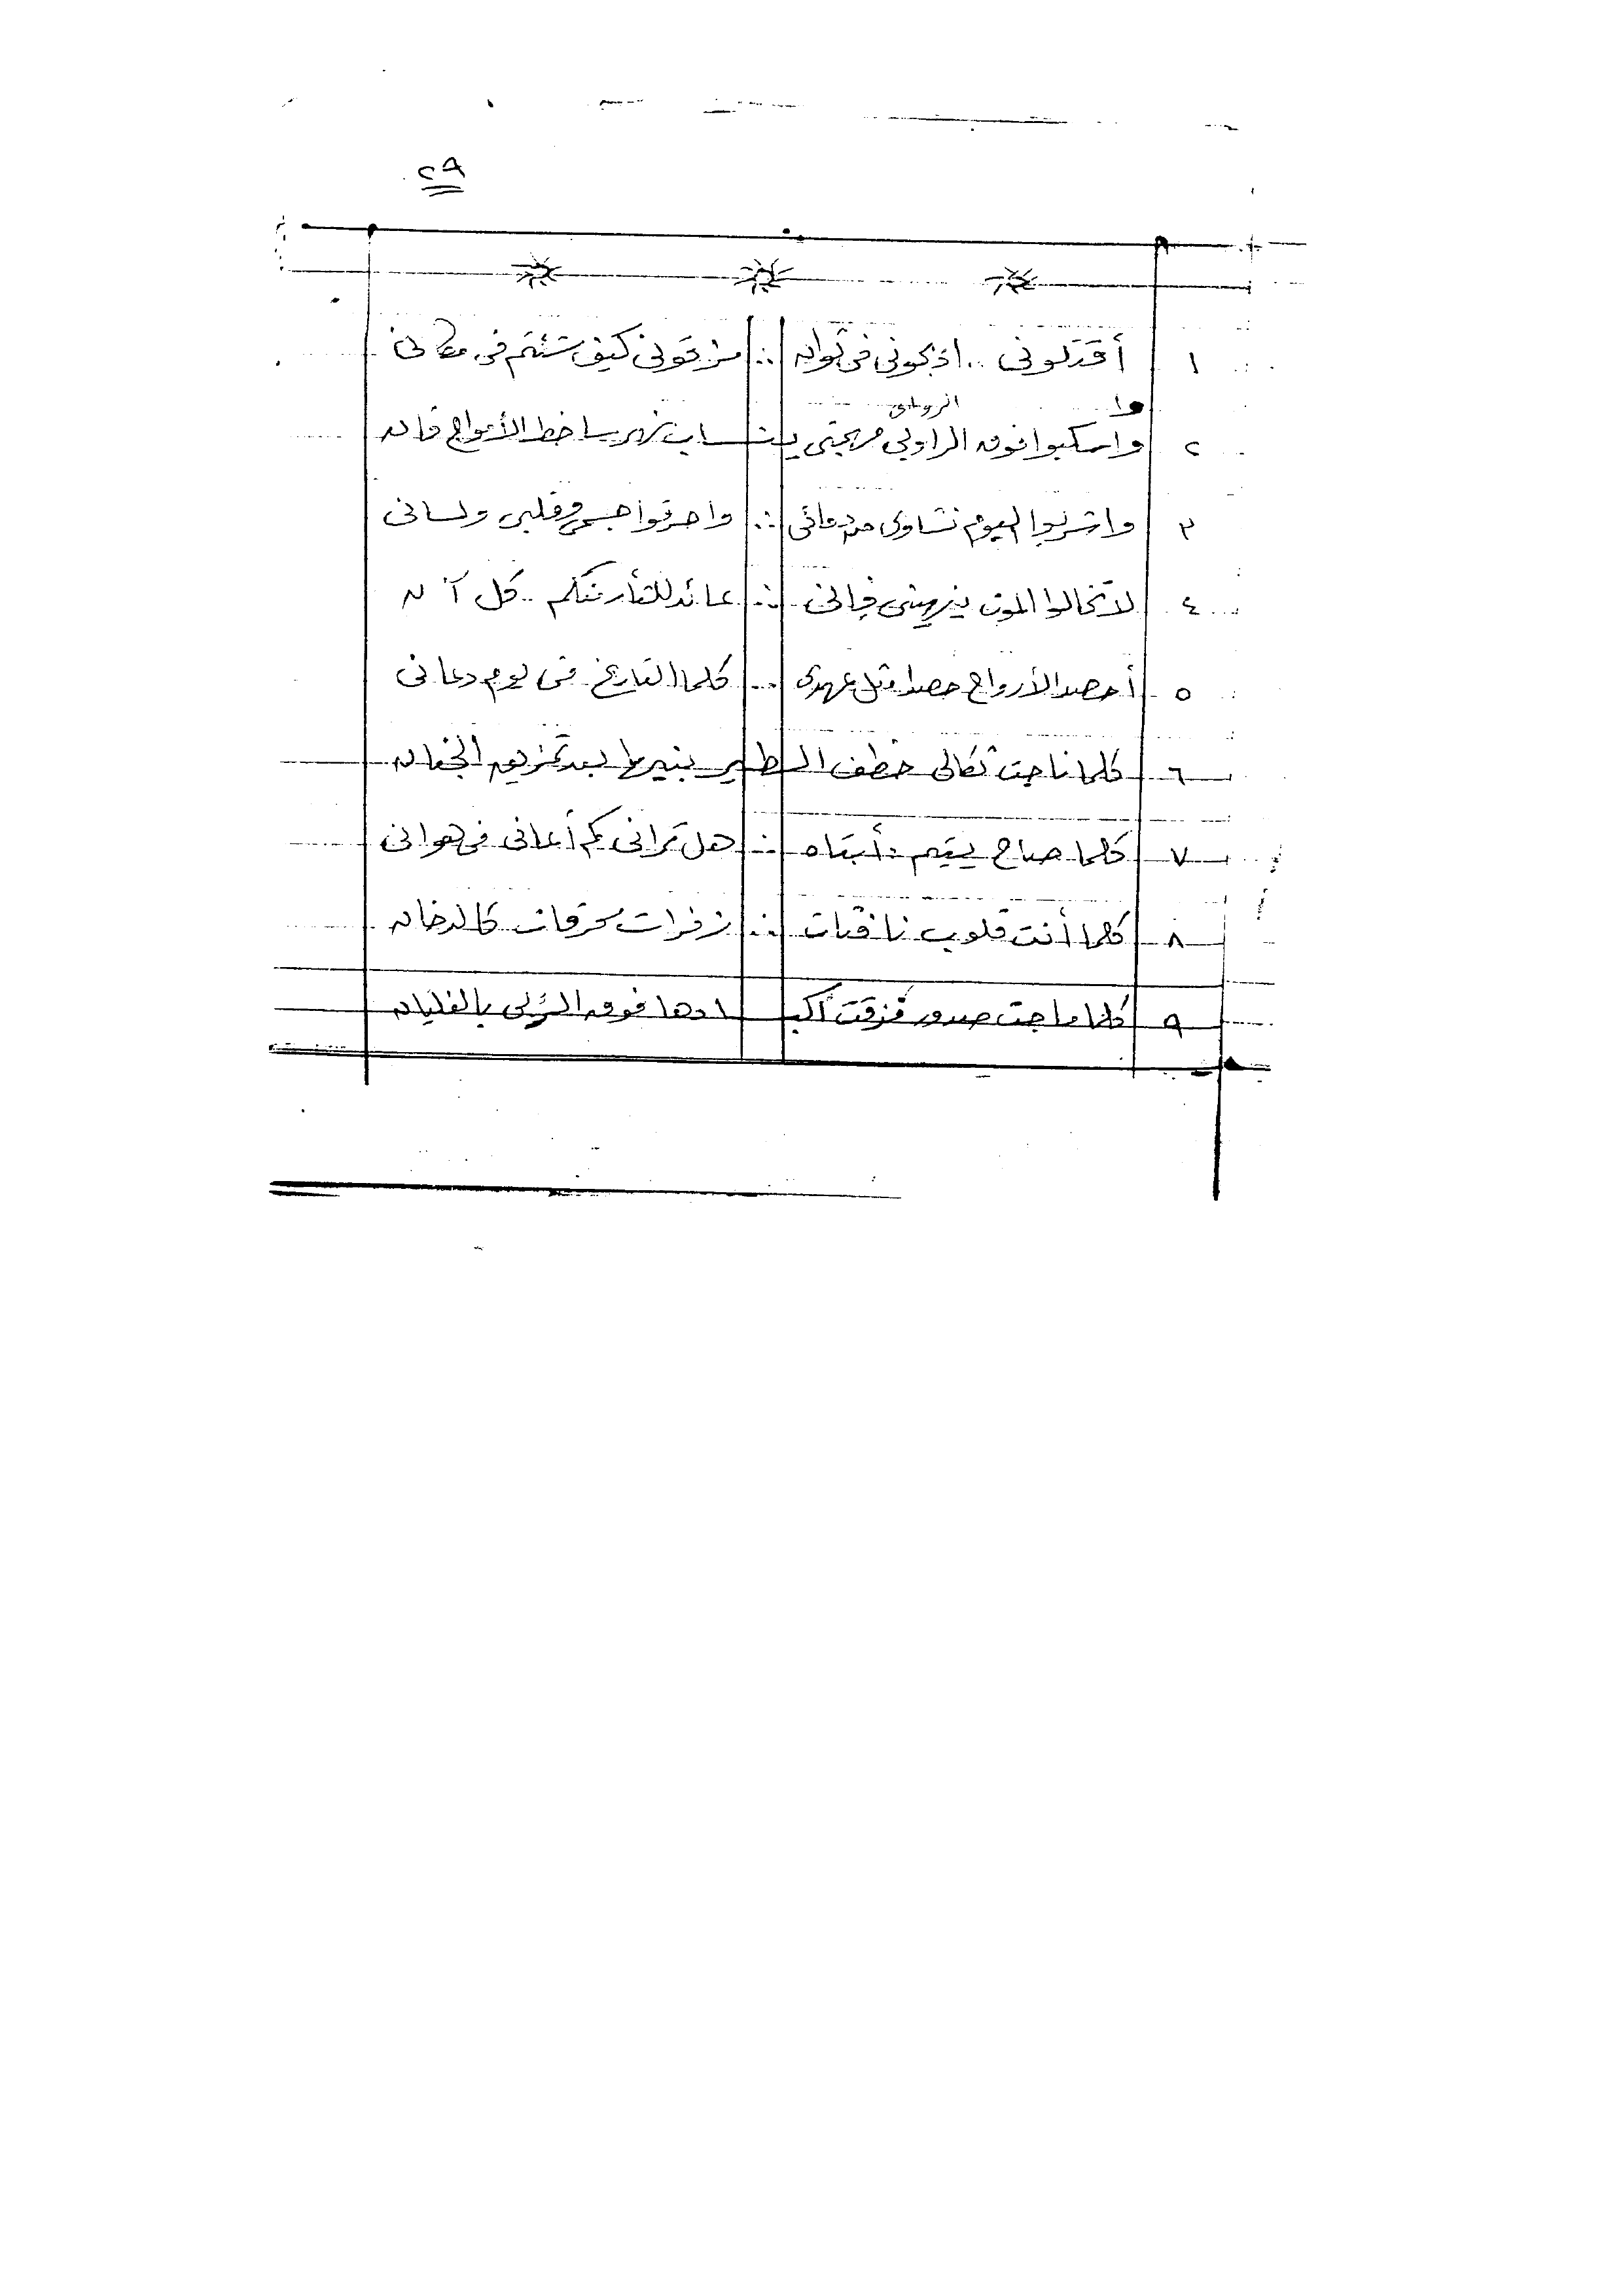 ٢٩
١ أقتلوني .. اذبحوني في ثوان ∴ مزقوني كيف شئتم في مكاني
الروابي وا
٢ واسكبوا فوق الراوبي مهجتي ينساب نهر ساخط الأمواج قان
٣ واشربوا اليوم نشاوى من دمائي ∴ واحرقوا جسمي وقلبي ولساني
٤ لا تخالوا الموت ينهيني فإني ∴ عائد للثأر منكم .. كل آن
٥ أحصد الأرواح حصدا مثل عهدي ∴ كلما التاريخ في يوم دعاني
٦ كلما ناحت ثكالى خطف الطير بنيها بعد تمزيق الجفان
٧ كلما صاح يتيم : أبتاه ∴ هل تراني كم أعاني في هواني
٨ كلما أنت قلوب نازفات ∴ زفرات محرقات كالدخان
٩ كلما ماجت صدور مزقت أكبادها فوق الربى بالغليان